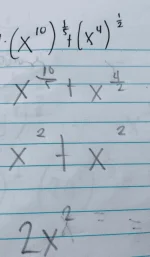 (x^10)^1/5 + (x^4)^1/2
x^10/5 + x^4/2
x^2 + x^2
2x^2 = =